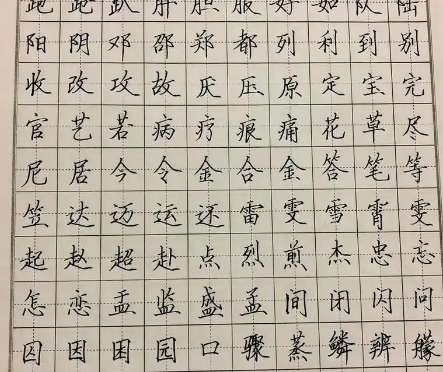 跑 跪 趴 胖 胆 服 好 如 队 陆
阳 阴 邓 邵 郑 都 列 利 到 别
收 改 攻 故 厌 压 原 定 宝 完
官 艺 若 病 疗 痕 痛 花 草 尽
尼 居 今 令 金 合 金 答 笔 等
笠 达 迈 运 还 雷 雯 雪 霄 雯
起 赵 超 赴 点 烈 煎 杰 忠 忘
怎 恋 孟 监 盛 孟 间 闭 闪 问
囚 因 困 园 口 骤 蒸 鳞 辨